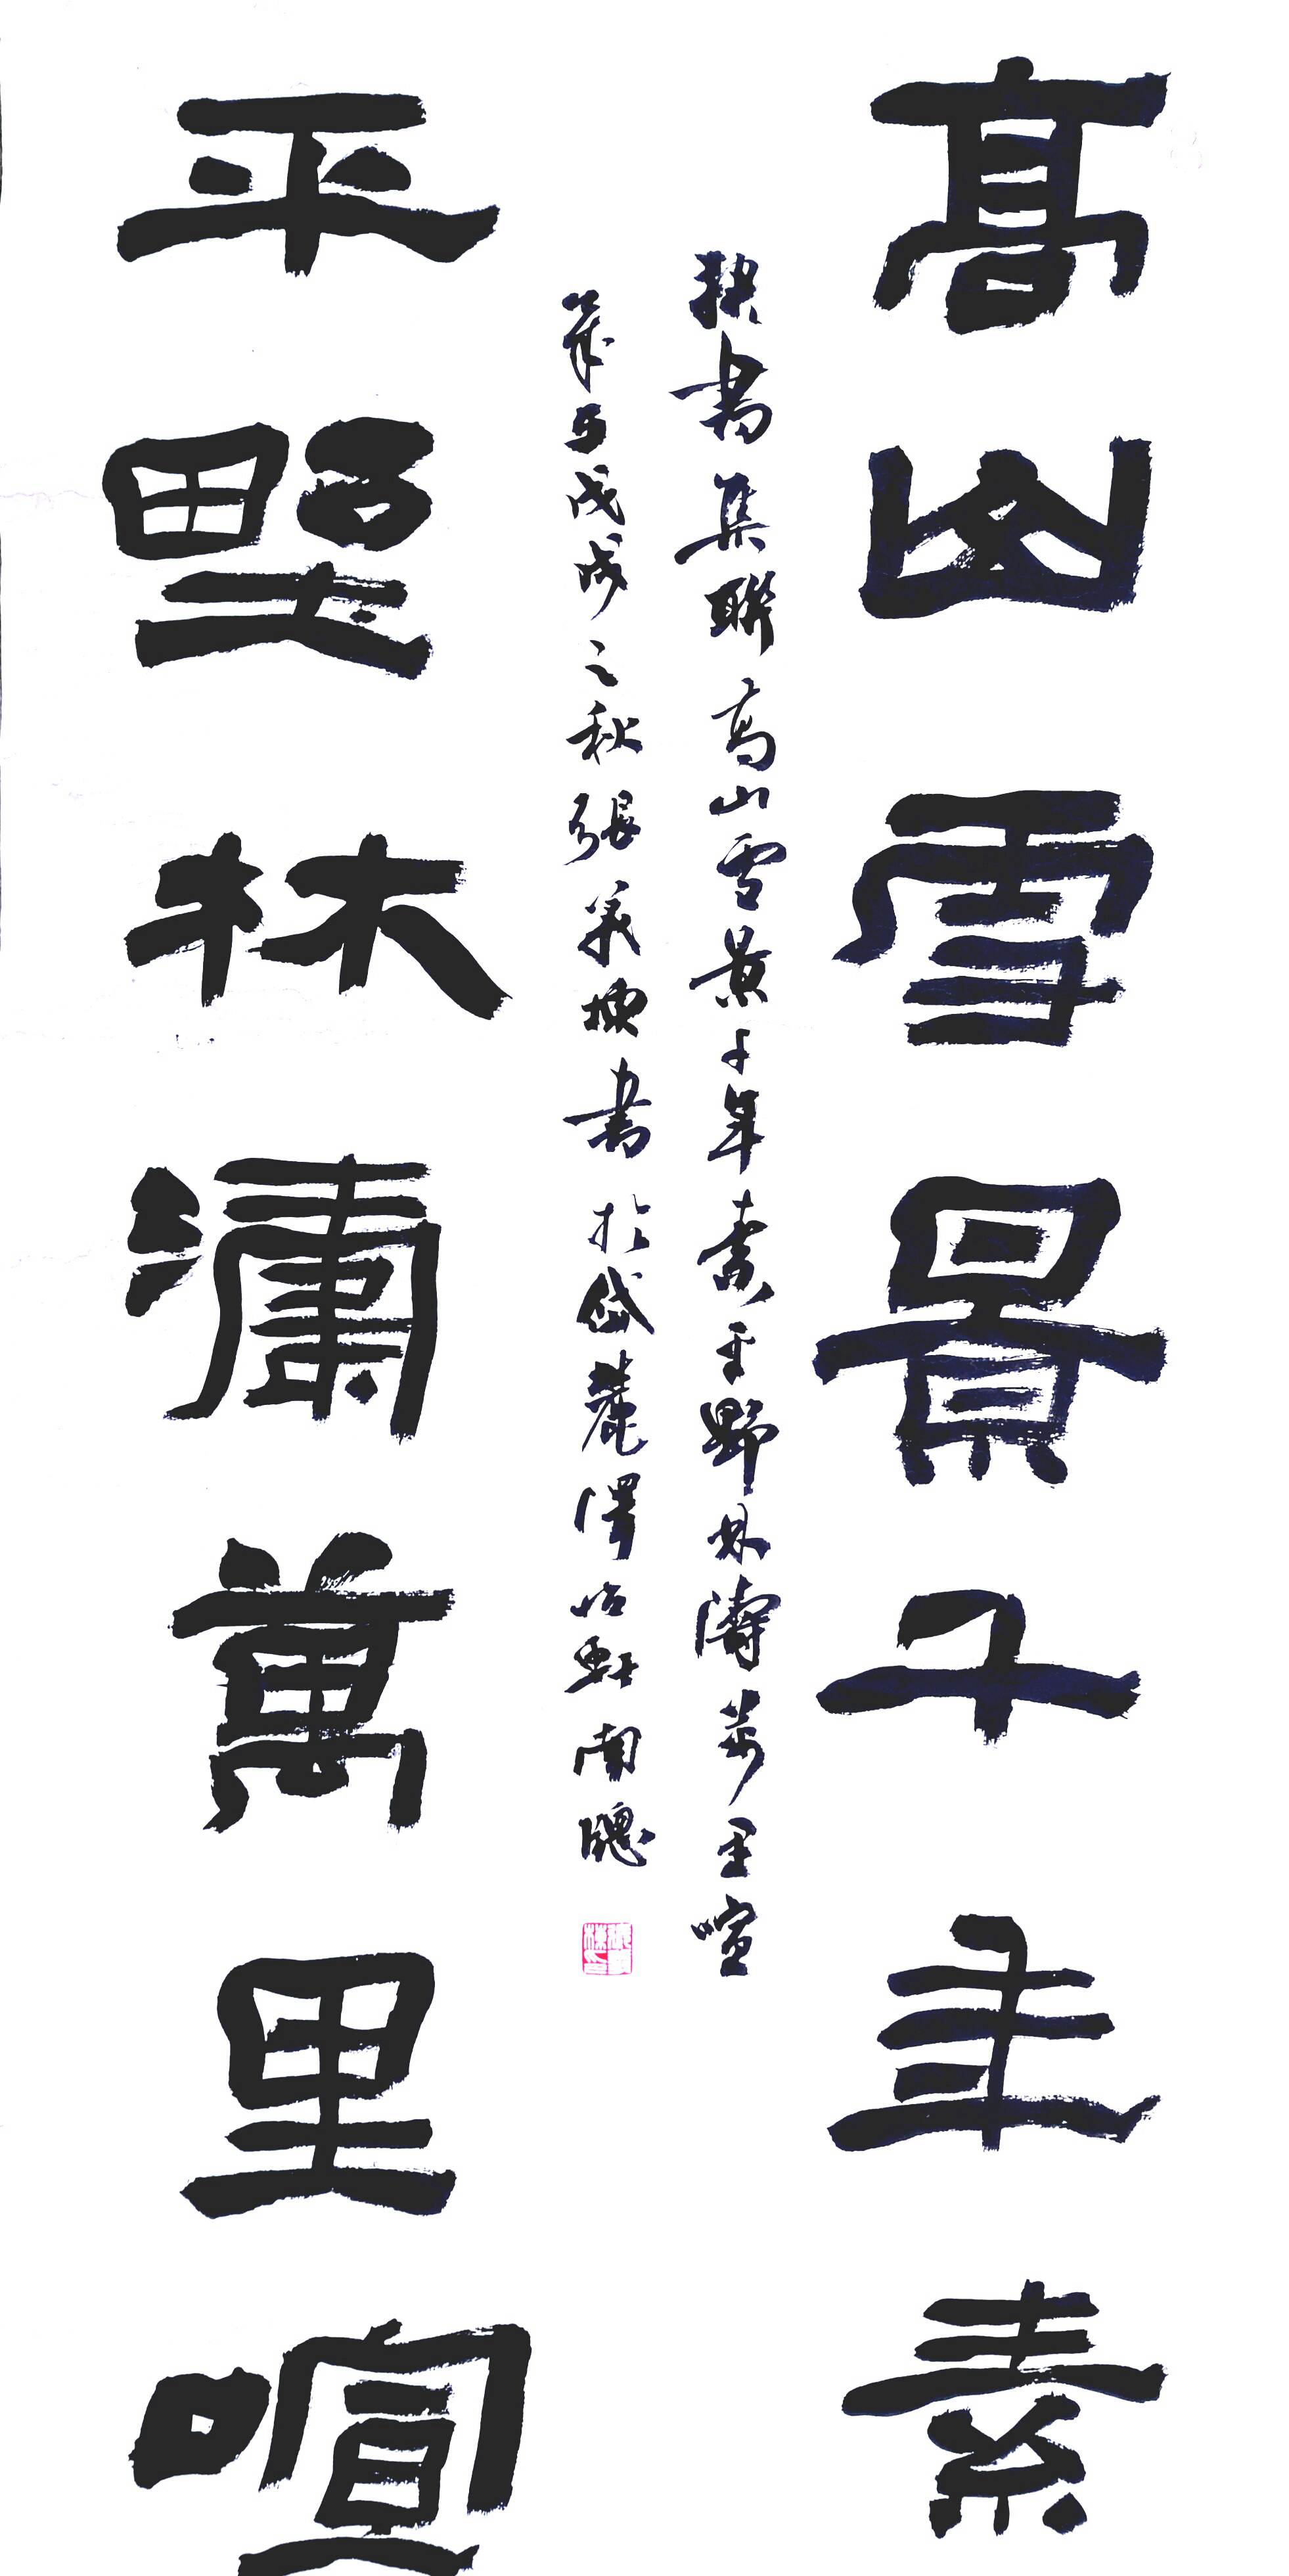 高山雪景千年素
隸書集聯高山雪景千年素平野林濤萬里喧
歲次戊戌之秋張義 書於岱麓 軒南窗
平野林濤萬里喧